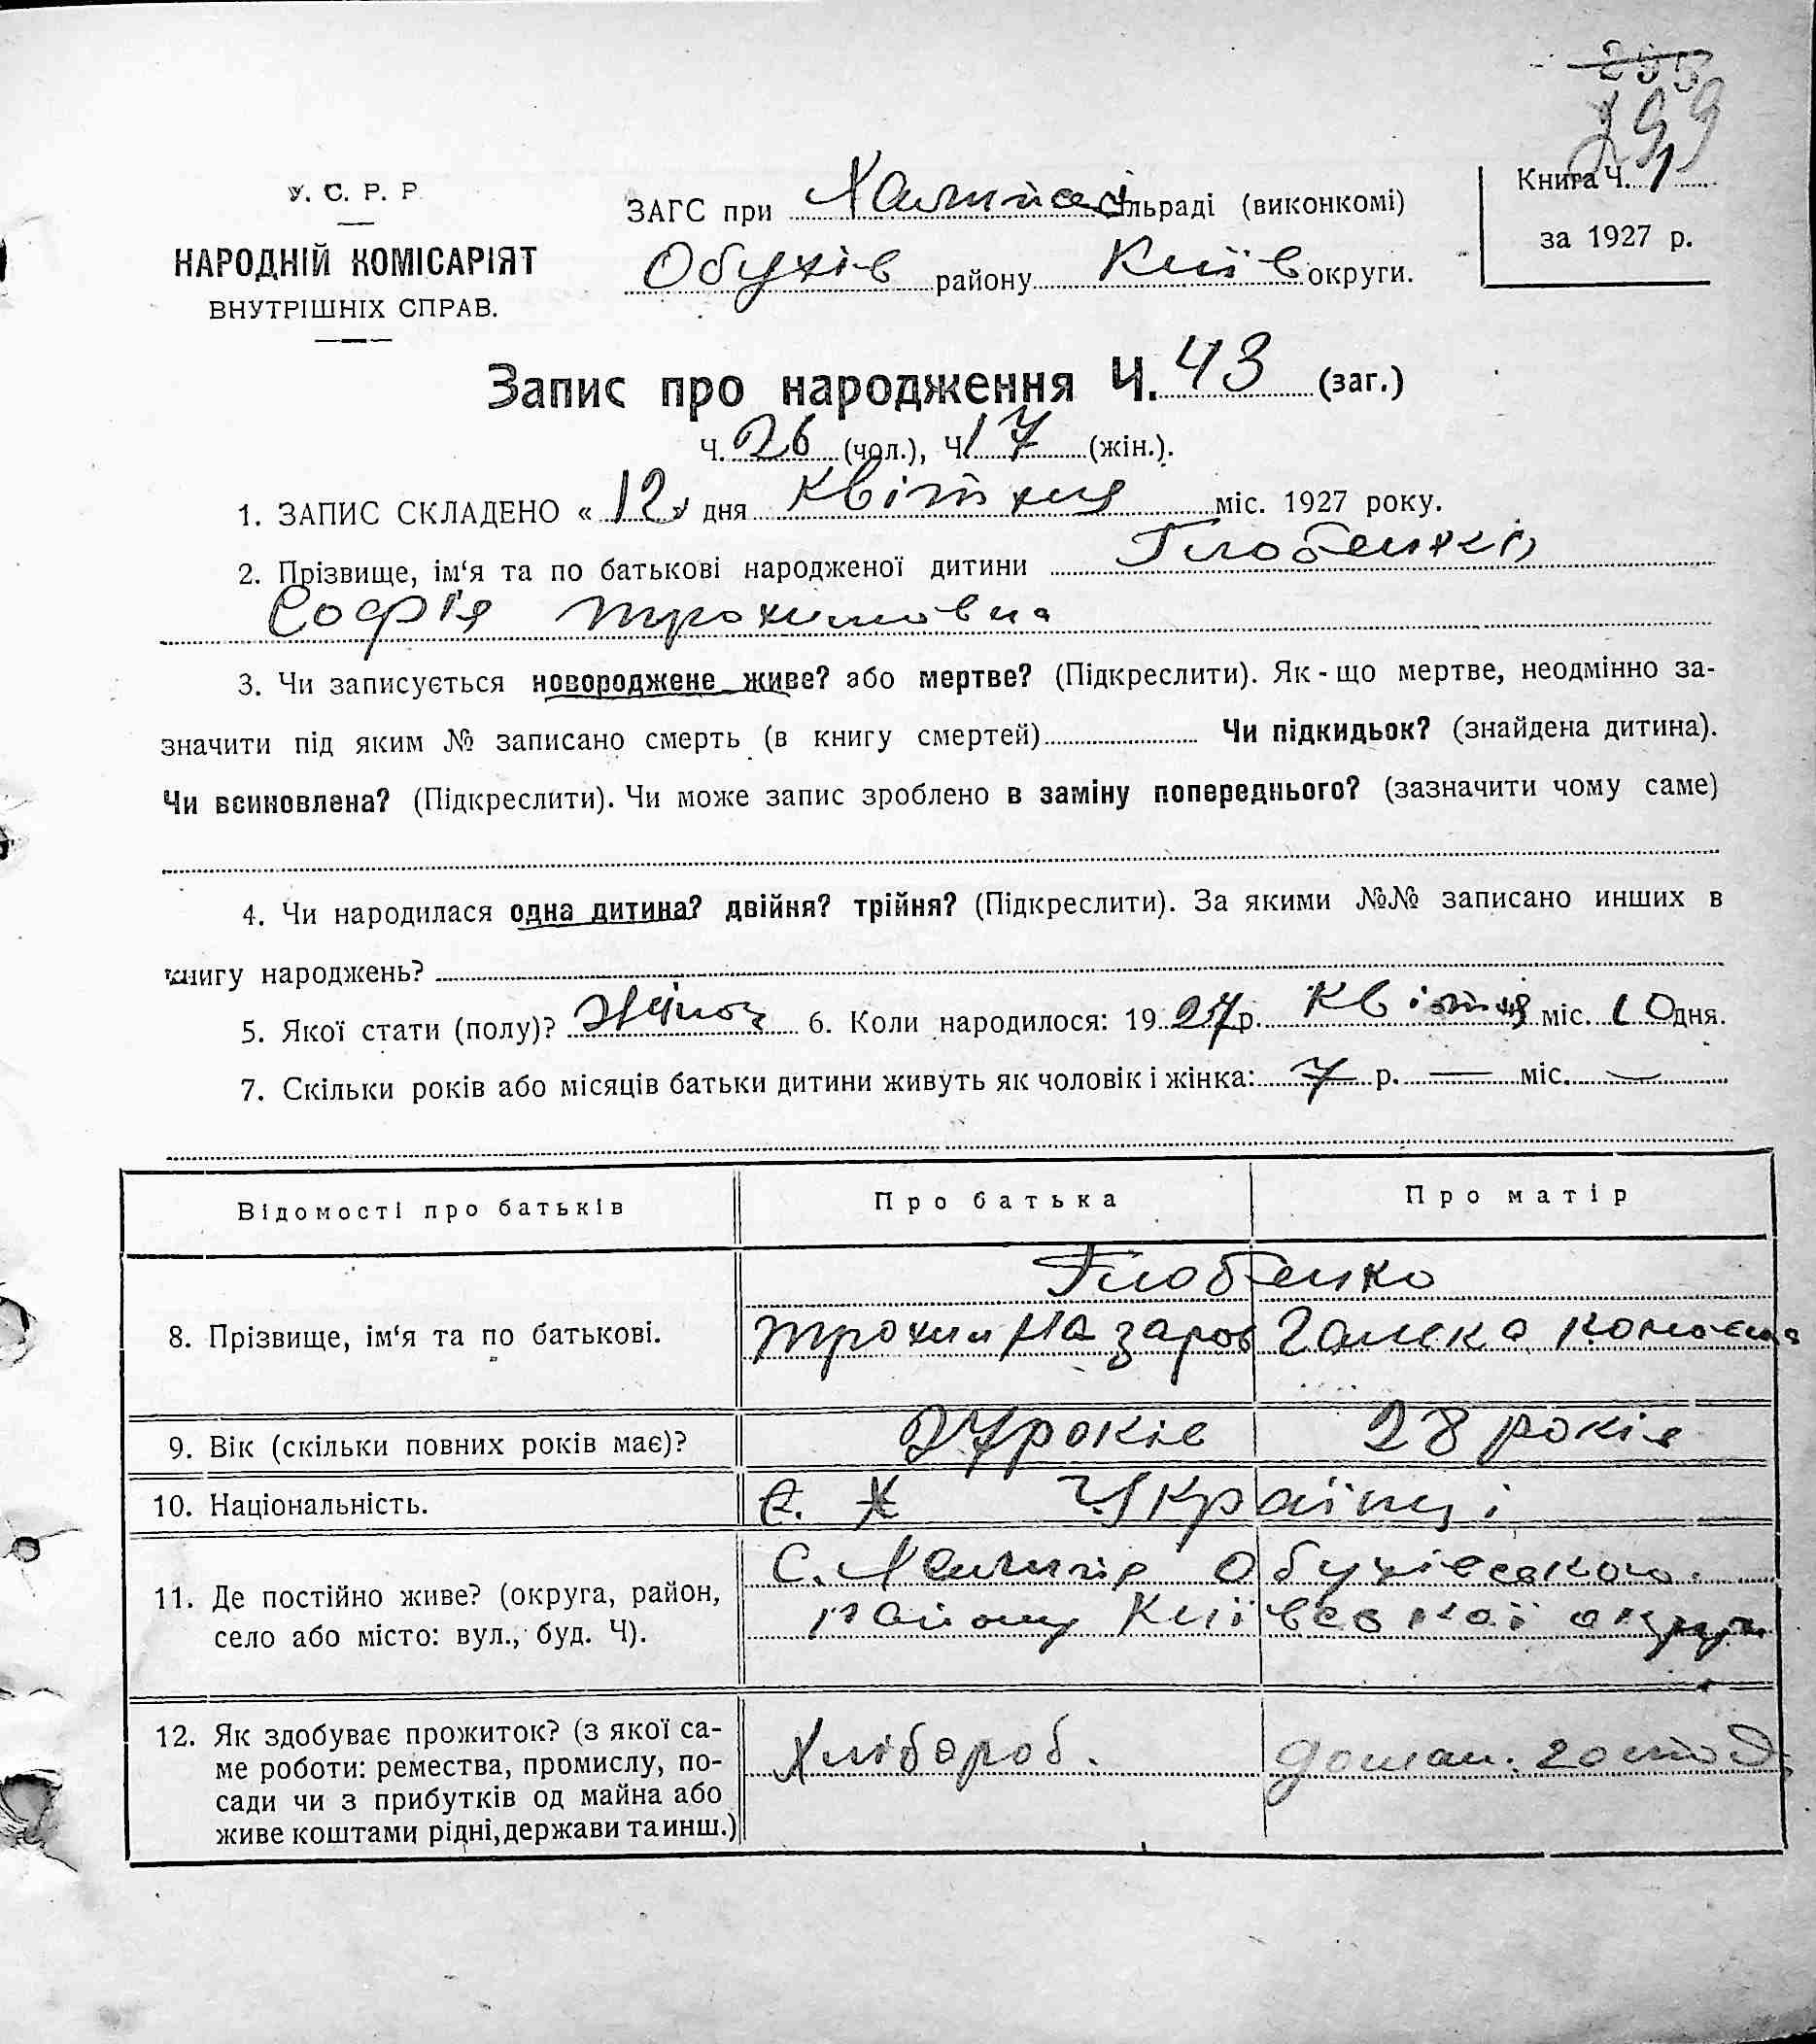 255
299
У. С. Р. Р.
НАРОДНІЙ КОМІСАРІЯТ
ВНУТРІШНІХ СПРАВ.
ЗАГС при Халипській сільраді (виконкомі)
Обухів району Київ округи.
Книга Ч. 1
за 1927 р.
Запис про народження Ч. 43 (заг.)
Ч. 26 (чол.), Ч. 17 (жін.).
1. ЗАПИС СКЛАДЕНО « 12 » дня Квітня міс. 1927 року.
2. Прізвище, ім‘я та по батькові народженої дитини Глобенко
Софія Трохимовна
3. Чи записується новороджене живе? або мертве? (Підкреслити). Як-що мертве, неодмінно за-
значити під яким № записано смерть (в книгу смертей) Чи підкидьок? (знайдена дитина).
Чи всиновлена? (Підкреслити). Чи може запис зроблено в заміну попереднього? (зазначити чому саме)
4. Чи народилася одна дитина? двійня? трійня? (Підкреслити). За якими №№ записано инших в
книгу народжень?
5. Якої стати (полу)? Жіноч 6. Коли народилося: 1927 р. Квітня міс. 10 дня.
7. Скільки років або місяців батьки дитини живуть як чоловік і жінка: 7 р. — міс. —
Відомості про батьків Про батька Про матір
Глобенко
8. Прізвище, ім‘я та по батькові. Трохим Назаров Ганска
9. Вік (скільки повних років має)? 27 років 28 років
10. Національність. Українці
11. Де постійно живе? (округа, район, с. Халипʼя Обухівського
село або місто: вул., буд. Ч). району Київвської округи
12. Як здобуває прожиток? (з якої са-
ме роботи: ремества, промислу, по- Хлібороб. домаш. господ.
сади чи з прибутків од майна або
живе коштами рідні, держави та инш.)